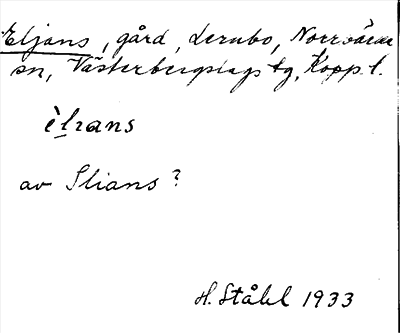 Eljans, gård, Lernbo, Norrbärke
sn, Västerbergslags tg, Kopp. l.
èlrans
av Elians?
H. Ståhl 1933